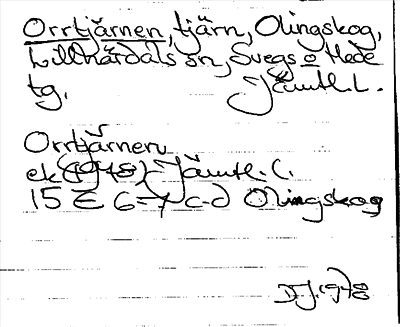 Orrtjärnen, tjärn, Olingskog,
Lillhärdals sn, Svegs o Hede
tg. Jämtl.L.
Orrtjärnen
ek (1978) Jämtl.L.
15 E 6-7 c-d Olingskog
DJ. 1978